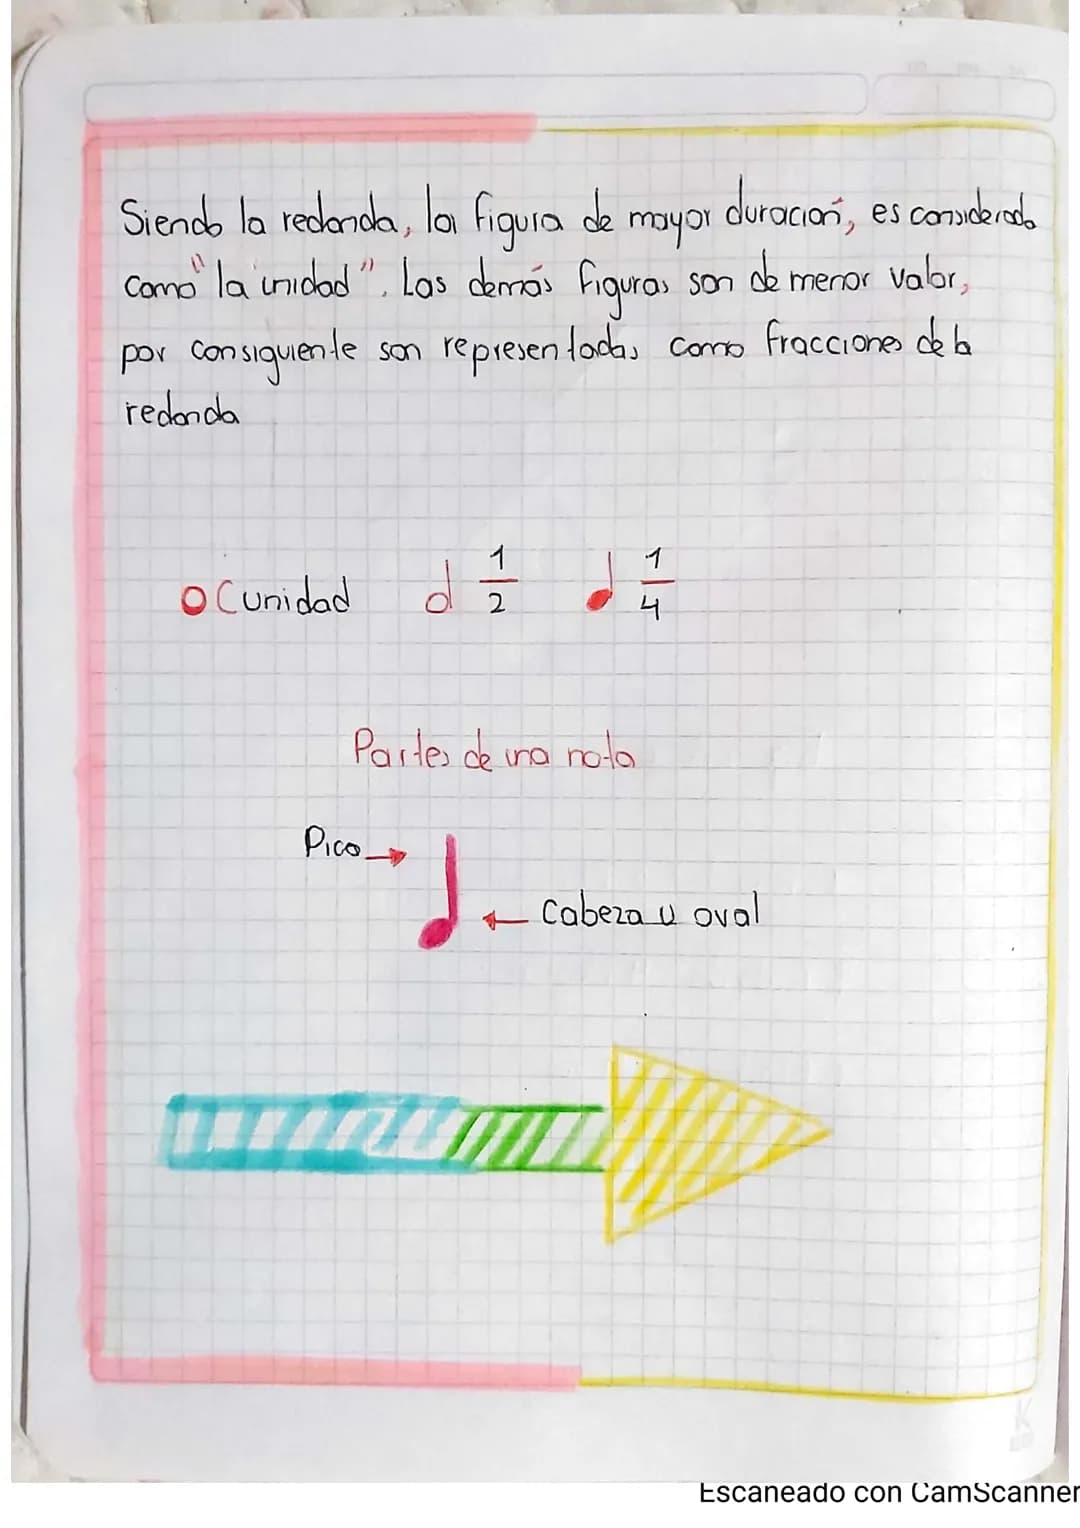 Siendo la redonda, la figura de mayor duración, es considerada
como "la unidad". Las demás figuras son de menor valor,
por consiguiente son representadas como fracciones de la
redonda
O (unidad 1/2 1/4
Partes de una nota
Pico
Cabeza u oval
Escaneado con CamScanner